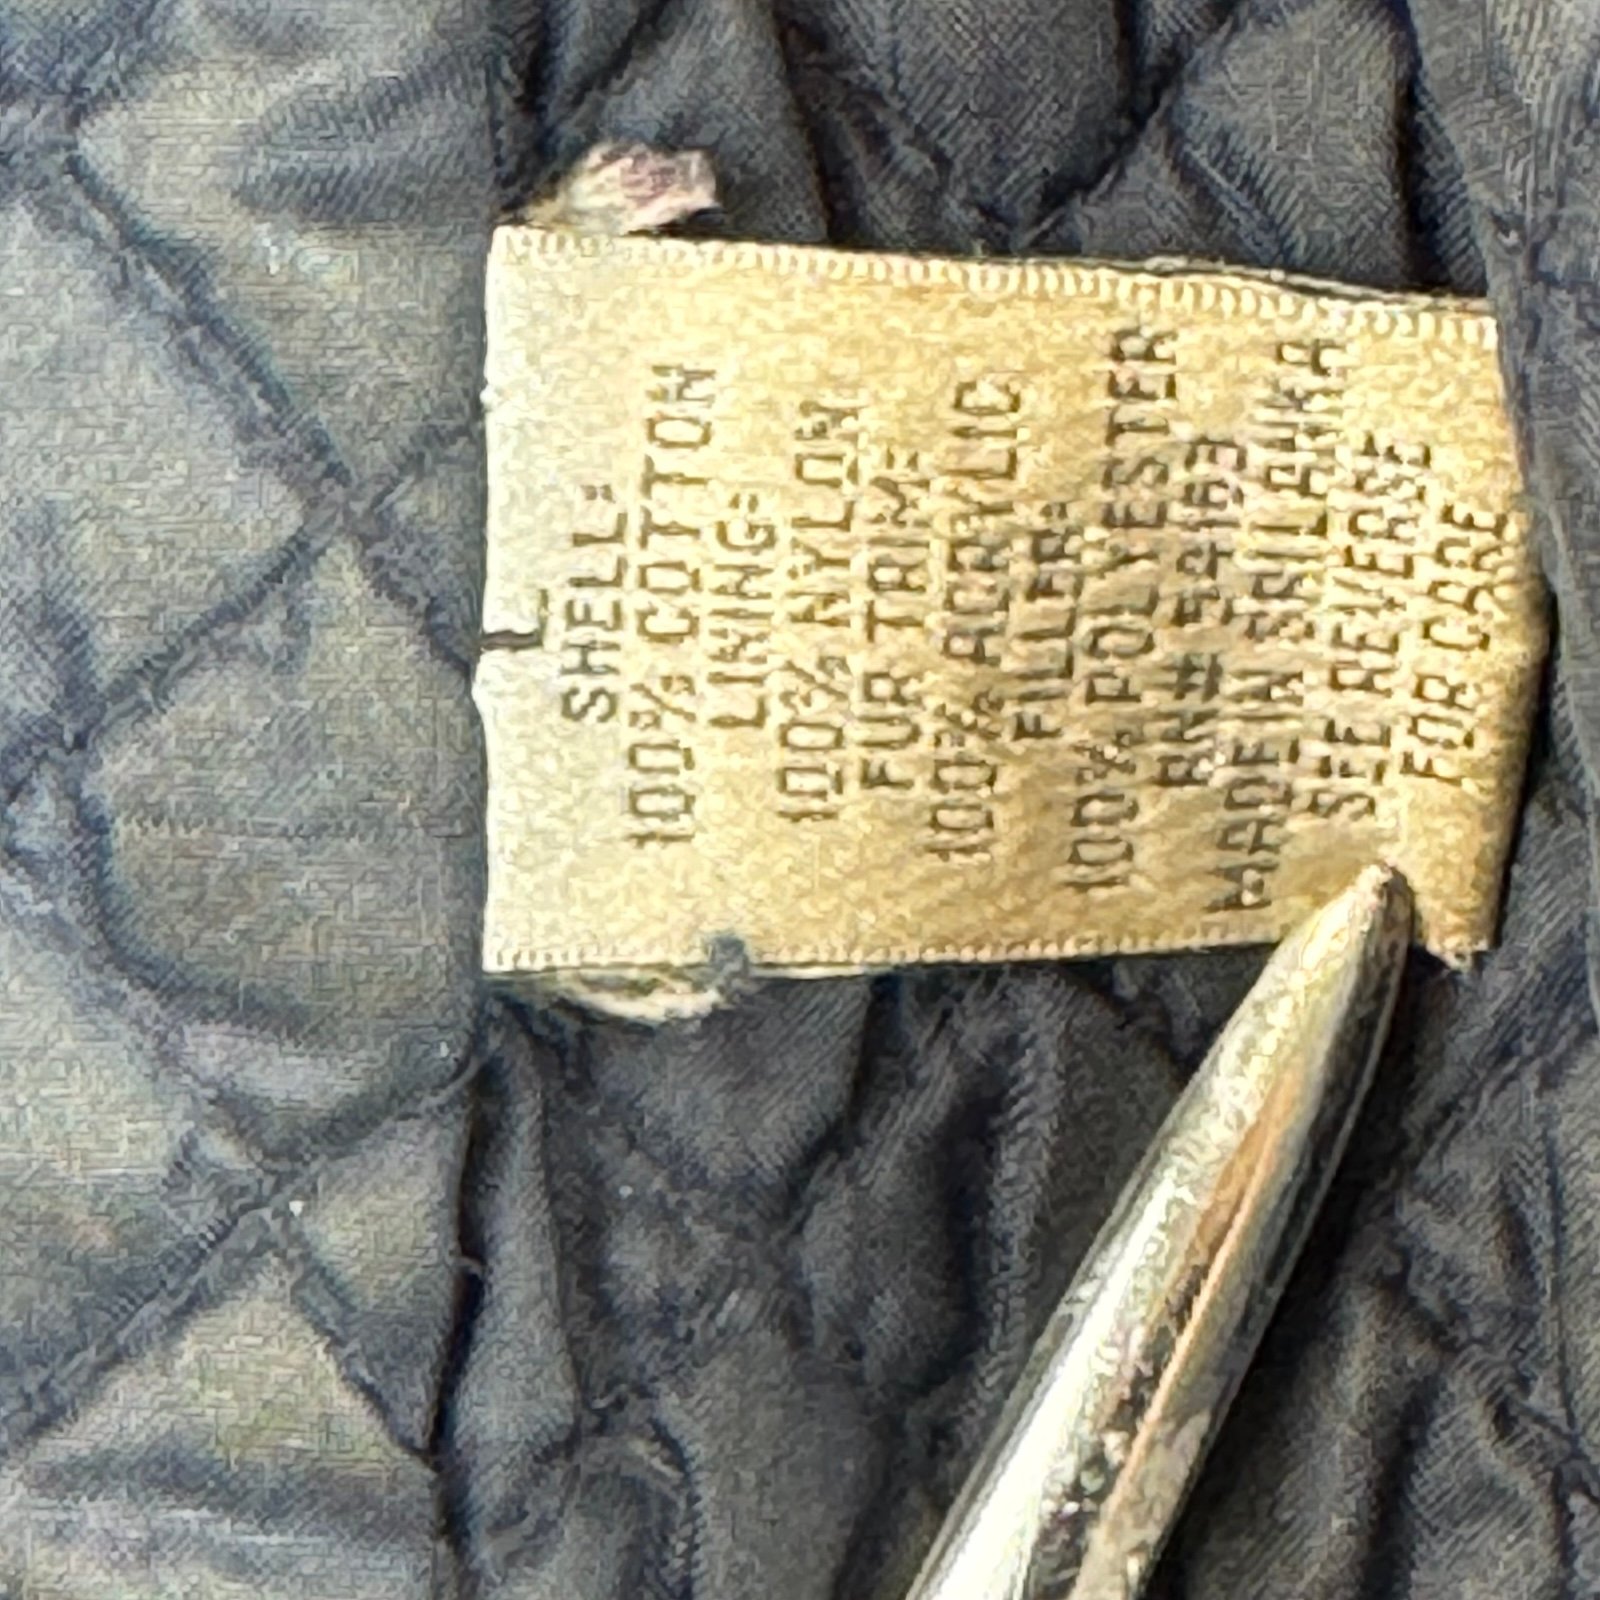 SHELL:
100% COTTON
LINING:
100% NYLON
FUR TRIM:
100% ACRYLIC
FILLER:
100% POLYESTER
RN# 54163
MADE IN SRI LANKA
SEE REVERSE
FOR CARE